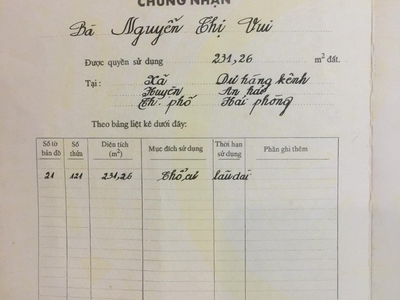 CHỨNG NHẬN
Bà Nguyễn Thị Vui
Được quyền sử dụng 231,26 m² đất.
Tại : Xã Dư hàng kênh
Huyện An hải
Th. phố Hải phòng
Theo bảng liệt kê dưới đây:
Số tờ bản đồ Số thửa Diện tích (m²) Mục đích sử dụng Thời hạn sử dụng Phần ghi thêm
21 121 231,26 Thổ cư lâu dài